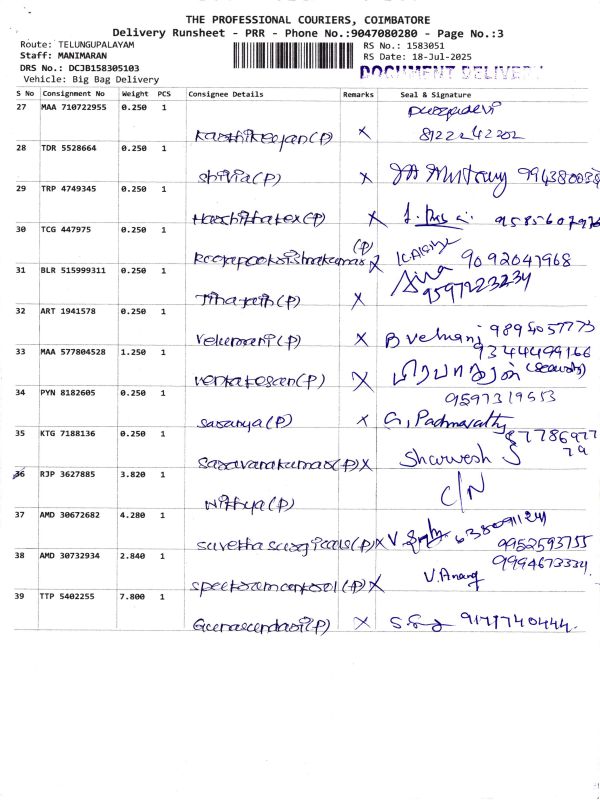 THE PROFESSIONAL COURIERS, COIMBATORE
Delivery Runsheet - PRR - Phone No.:9047080280 - Page No.:3
Route: TELUNGUPALAYAM
Staff: MANIMARAN
DRS No.: DCJB158305103
Vehicle: Big Bag Delivery
RS No.: 1583051
RS Date: 18-Jul-2025
DOCUMENT DELIVERY
S No Consignment No Weight PCS Consignee Details Remarks Seal & Signature
27 MAA 710722955 0.250 1
Karthikeyan(P) x 8122242202
28 TDR 5528664 0.250 1
Shivia(P) x
29 TRP 4749345 0.250 1
(P) x
30 TCG 447975 0.250 1
(P) x 9092047968
31 BLR 515999311 0.250 1
(P) x 9597223234
32 ART 1941578 0.250 1
Velumani(P) x B Velmani
33 MAA 577804528 1.250 1 9344499166
Venkatesan(P) x பிரபாகரன்
34 PYN 8182605 0.250 1
Saranya(P) x G. Padmavathy
35 KTG 7188136 0.250 1
Saravanakumar(P) x Sharwesh S
36 RJP 3627885 3.820 1 C/N
Nithya(P)
37 AMD 30672682 4.280 1
(P) x 9952593755
38 AMD 30732934 2.840 1 9994673334
(P) x V. Anang
39 TTP 5402255 7.800 1
Gunasundari(P) x